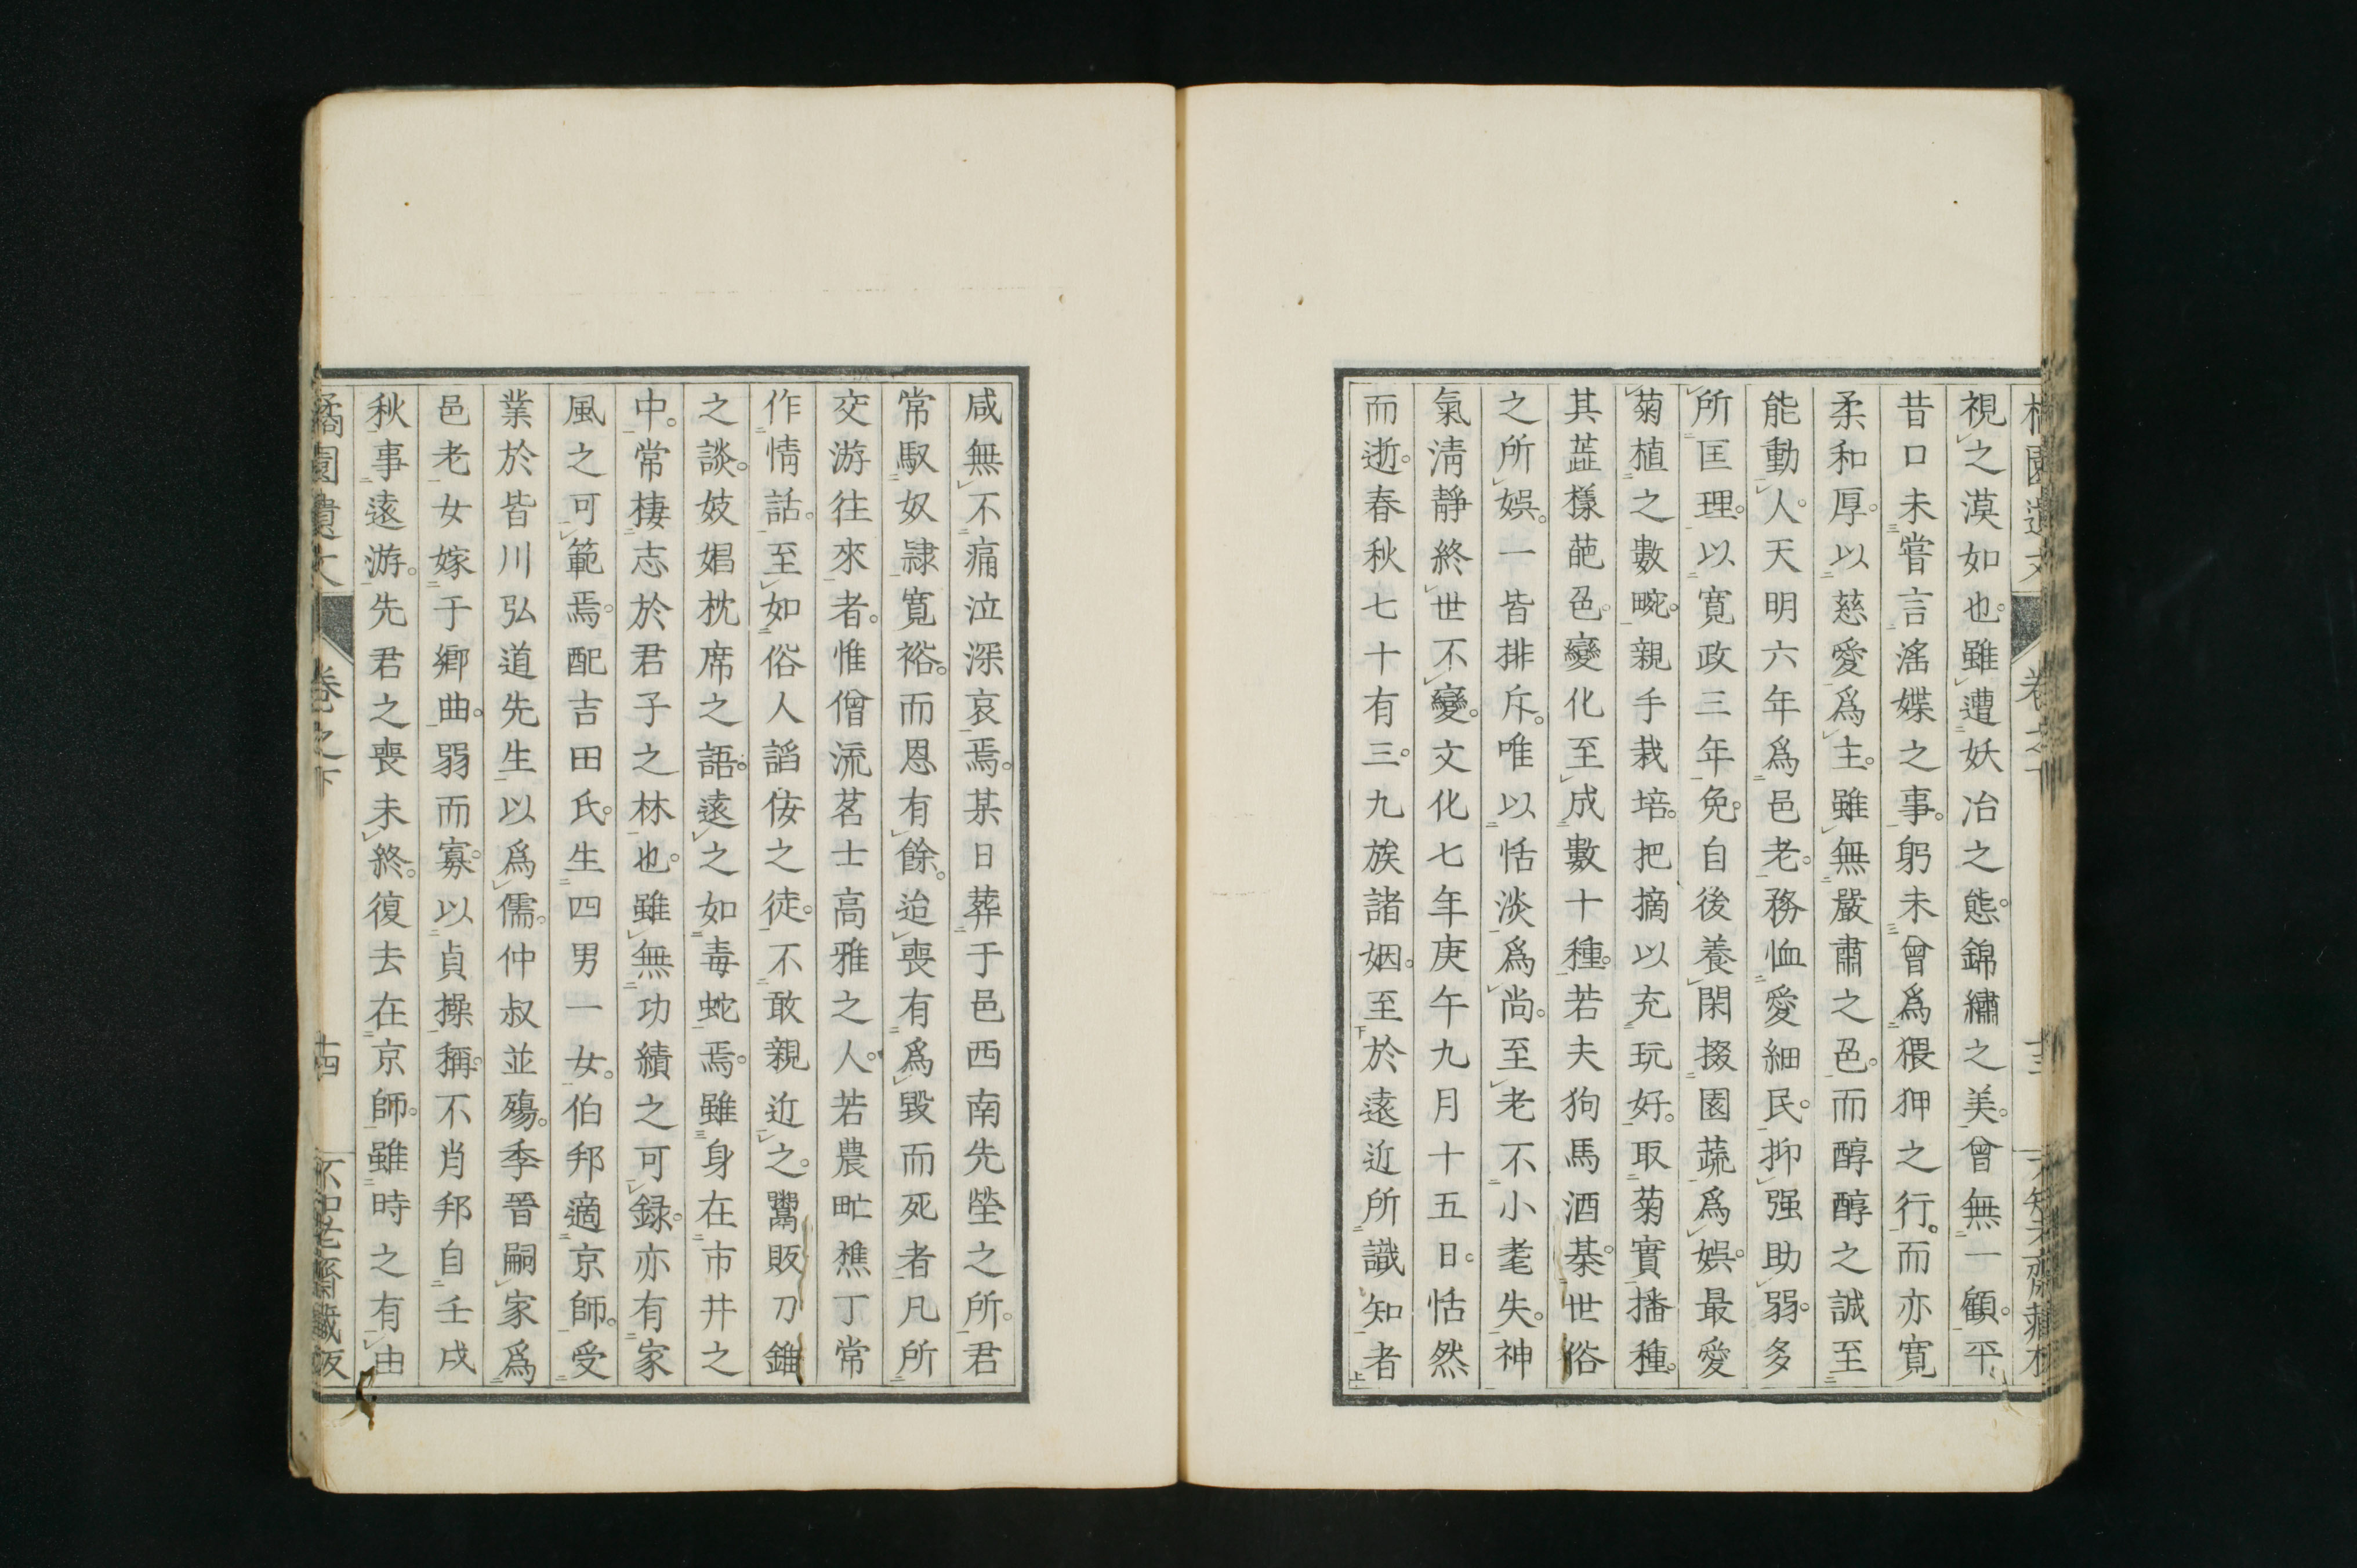 視之漠如也。雖遭妖冶之態。錦繡之美。曾無一顧。平
昔口未嘗言滛媟之事。躬未曾爲猥狎之行。而亦寛
柔和厚。以慈愛爲主。雖無嚴肅之色。而醇醇之誠至
能動人。天明六年爲邑老。務恤愛細民。抑强助弱。多
所匡理。以寛政三年免。自後養閑掇園蔬爲娯。最愛
菊植之數畹。親手栽培。把摘以充玩好。取菊實播種。
其蕋樣葩色。變化至成數十種。若夫狗馬酒棊。世俗
之所娯。一皆排斥。唯以恬淡爲尚。至老不小耄失。神
氣淸靜終世不變。文化七年庚午九月十五日。恬然
而逝。春秋七十有三。九族諸姻。至於遠近所識知者
咸無不痛泣深哀焉。某日葬于邑西南先塋之所。君
常馭奴隷寛裕。而恩有餘。迨喪有爲毀而死者凡所
交游往來者。惟僧流茗士高雅之人。若農甿樵丁常
作情話。至如俗人謟佞之徒。不敢親近之。鬻販刀錐
之談。妓娼枕席之語。遠之如毒蛇焉。雖身在市井之
中。常棲志於君子之林也。雖無功績之可録。亦有家
風之可範焉。配吉田氏。生四男一女。伯邦適京師。受
業於皆川弘道先生以爲儒。仲叔並殤。季晉嗣家爲
邑老女嫁于鄉曲。弱而寡。以貞操稱。不肖邦自壬戌
秋事遠游。先君之喪未終。復去在京師。雖時之有由
橘園遺文 卷之下 十四 不知老齋藏版